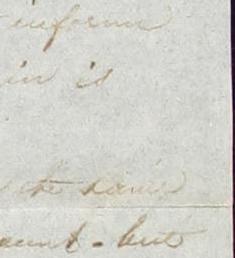 inform
in is
the same
ount - but